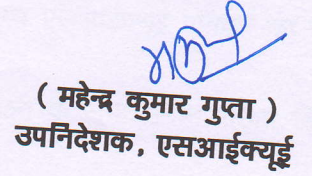 ( महेन्द्र कुमार गुप्ता )
उपनिदेशक, एसआईक्यूई